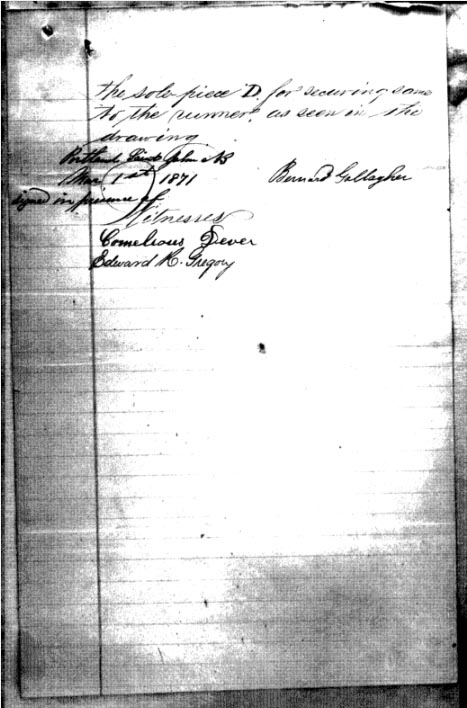 the sole piece D, for securing same
to the runner, as seen in the
drawing
Portland, Saint John NB
Mar 1st 1871 Bernard Gallagher
signed in presence of
Witnesses
Cornelious Dever
Edward R. Gregory